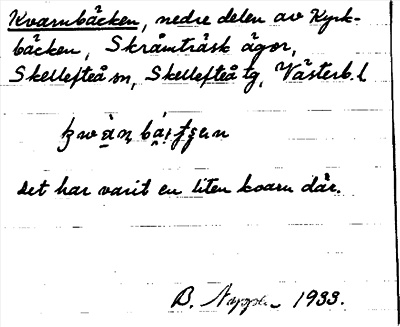 Kvarnbäcken, nedre delen av Kyrk-
bäcken, Skråmträsk ägor,
Skellefteå sn, Skellefteå tg, Västerb. l
det har varit en liten kvarn där.
B. 1933.